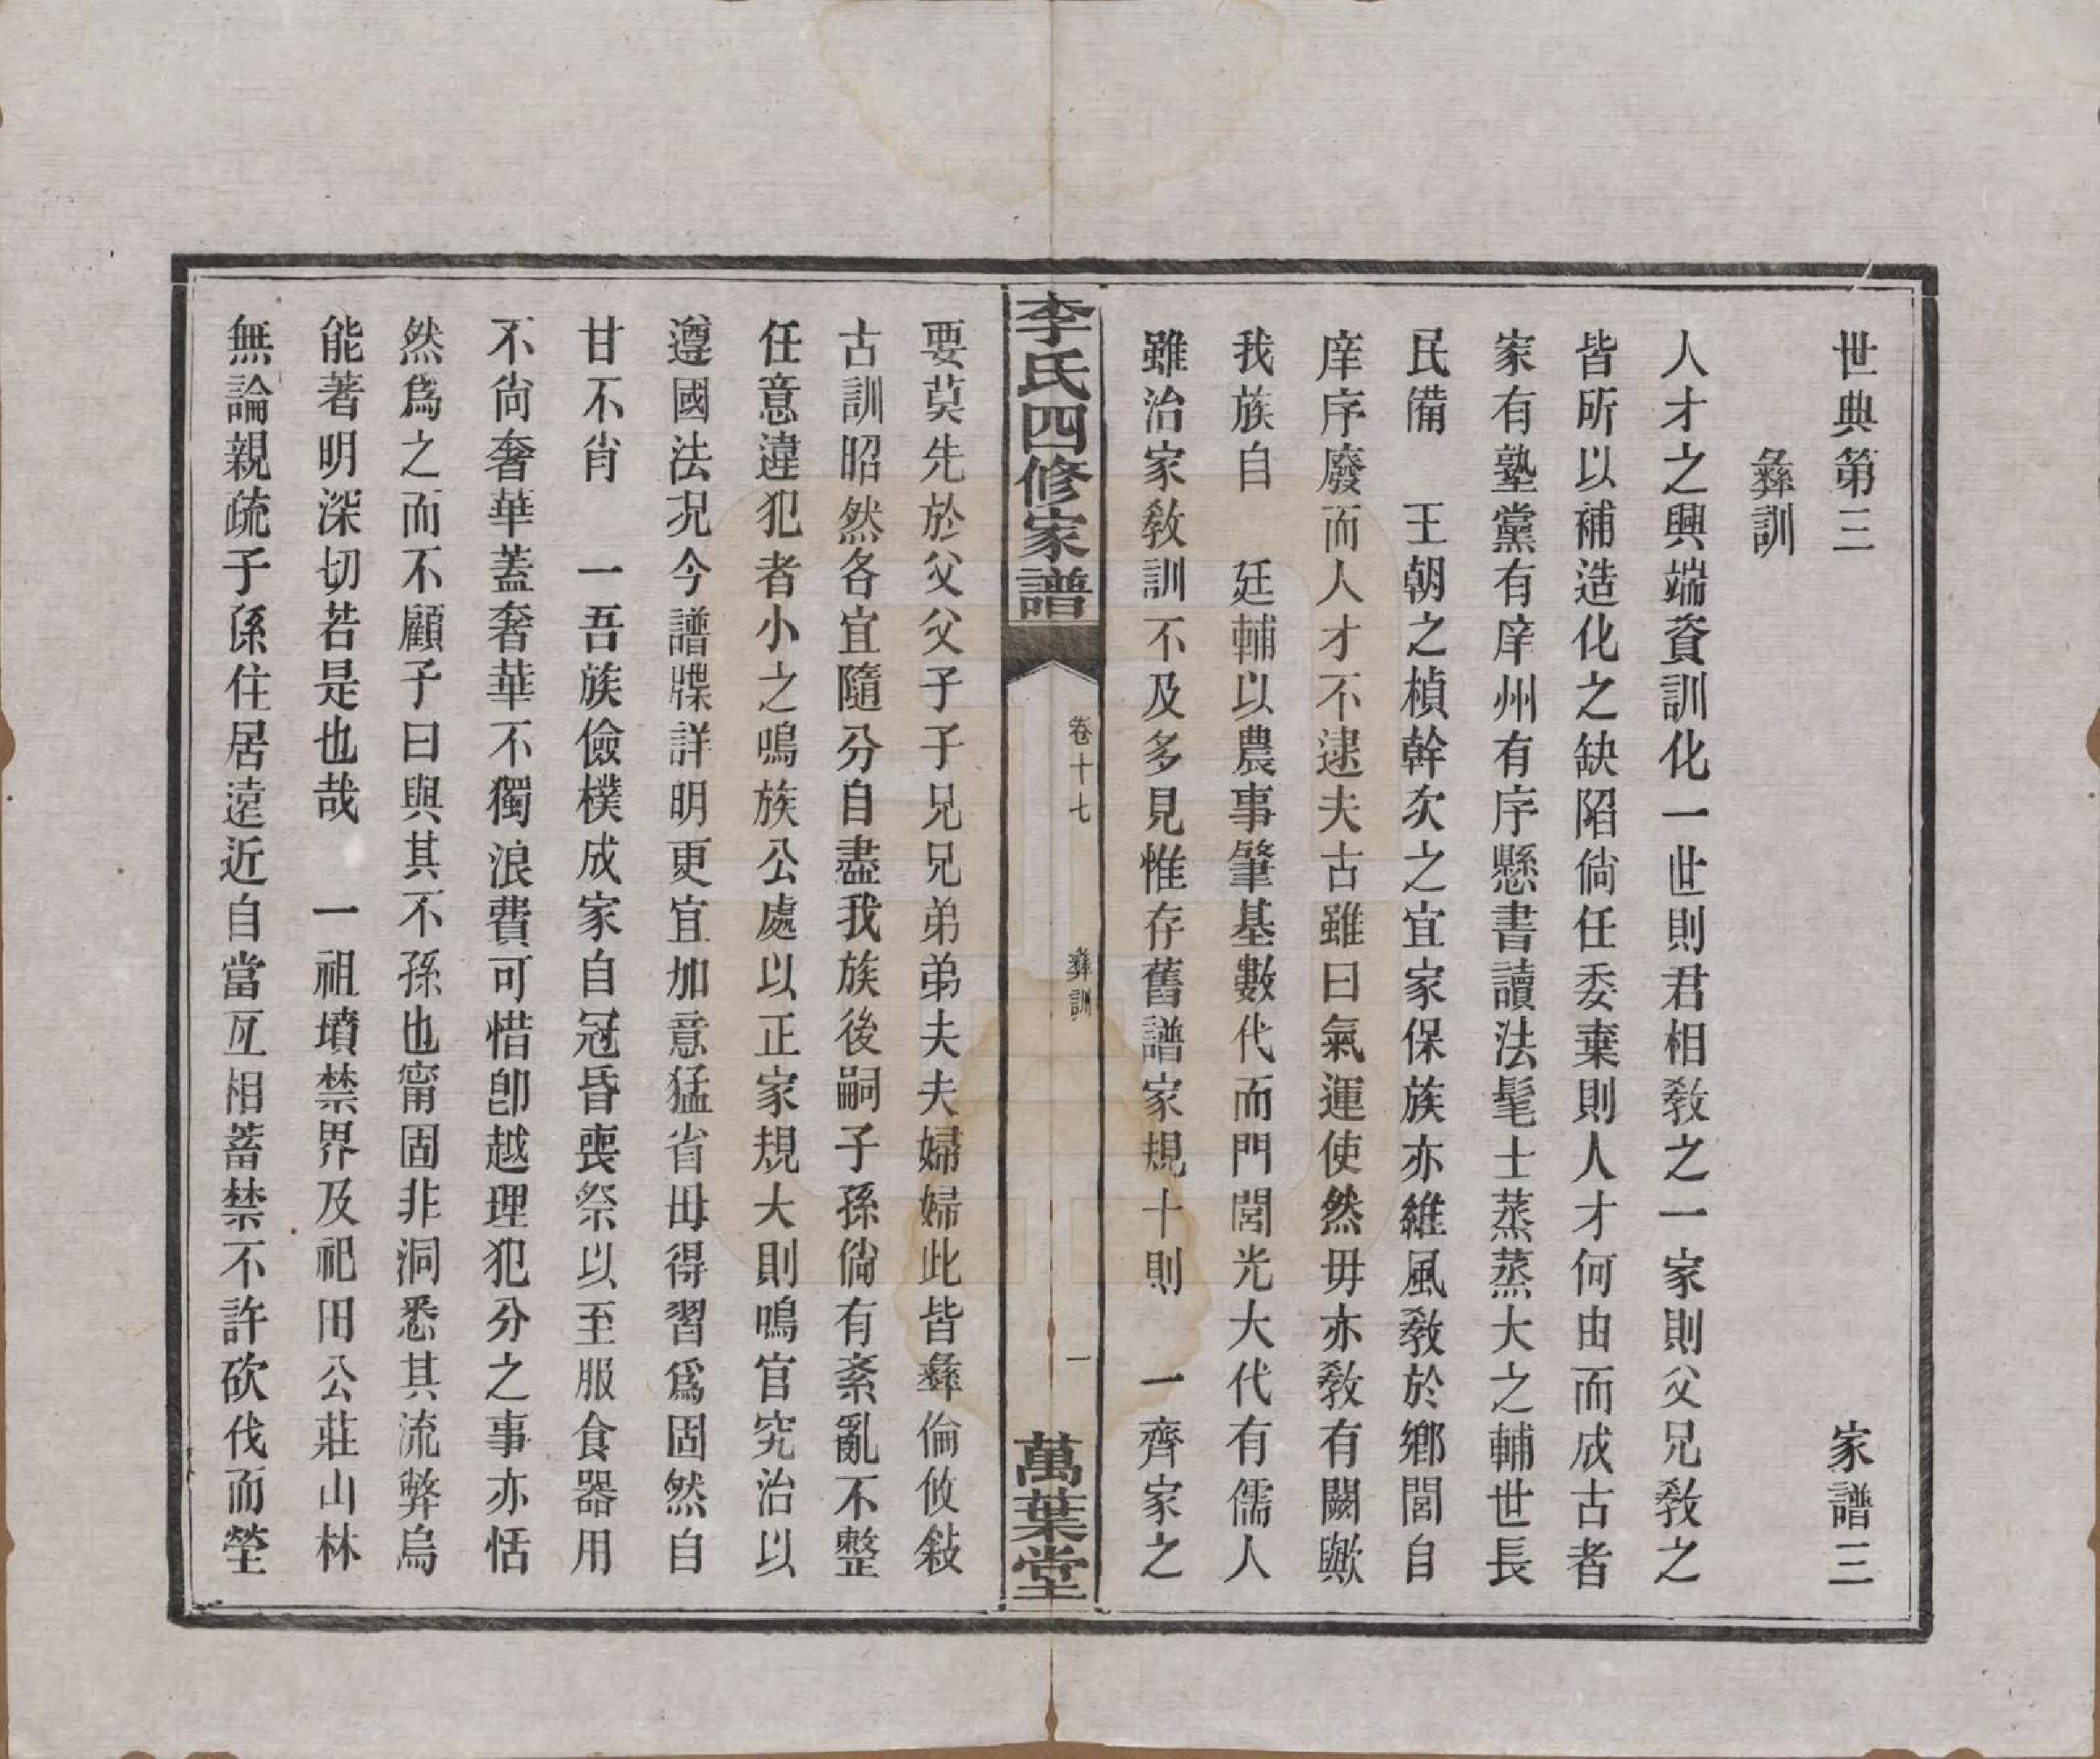 世典第三 家譜三
彝訓
人才之興端資訓化一世則君相敎之一家則父兄敎之
皆所以補造化之缺陷倘任委棄則人才何由而成古者
家有塾黨有庠州有序懸書讀法髦士蒸蒸大之輔世長
民備 王朝之楨幹次之宜家保族亦維風敎於鄉閭自
庠序廢而人才不逮夫古雖曰氣運使然毋亦敎有闕歟
我族自 廷輔以農事肇基數代而門閭光大代有儒人
雖治家敎訓不及多見惟存舊譜家規十則 一齊家之
李氏四修家譜 卷十七 彝訓 一 萬葉堂
要莫先於父父子子兄兄弟弟夫夫婦婦此皆彝倫攸敍
古訓昭然各宜隨分自盡我族後嗣子孫倘有紊亂不整
任意違犯者小之鳴族公處以正家規大則鳴官究治以
遵國法況今譜牒詳明更宜加意猛省毋得習爲固然自
甘不肖 一吾族儉樸成家自冠昏喪祭以至服食器用
不尙奢華蓋奢華不獨浪費可惜卽越理犯分之事亦恬
然爲之而不顧子曰與其不孫也甯固非洞悉其流弊烏
能著明深切若是也哉 一祖墳禁界及祀田公莊山林
無論親疏子孫住居遠近自當互相蓄禁不許砍伐而塋